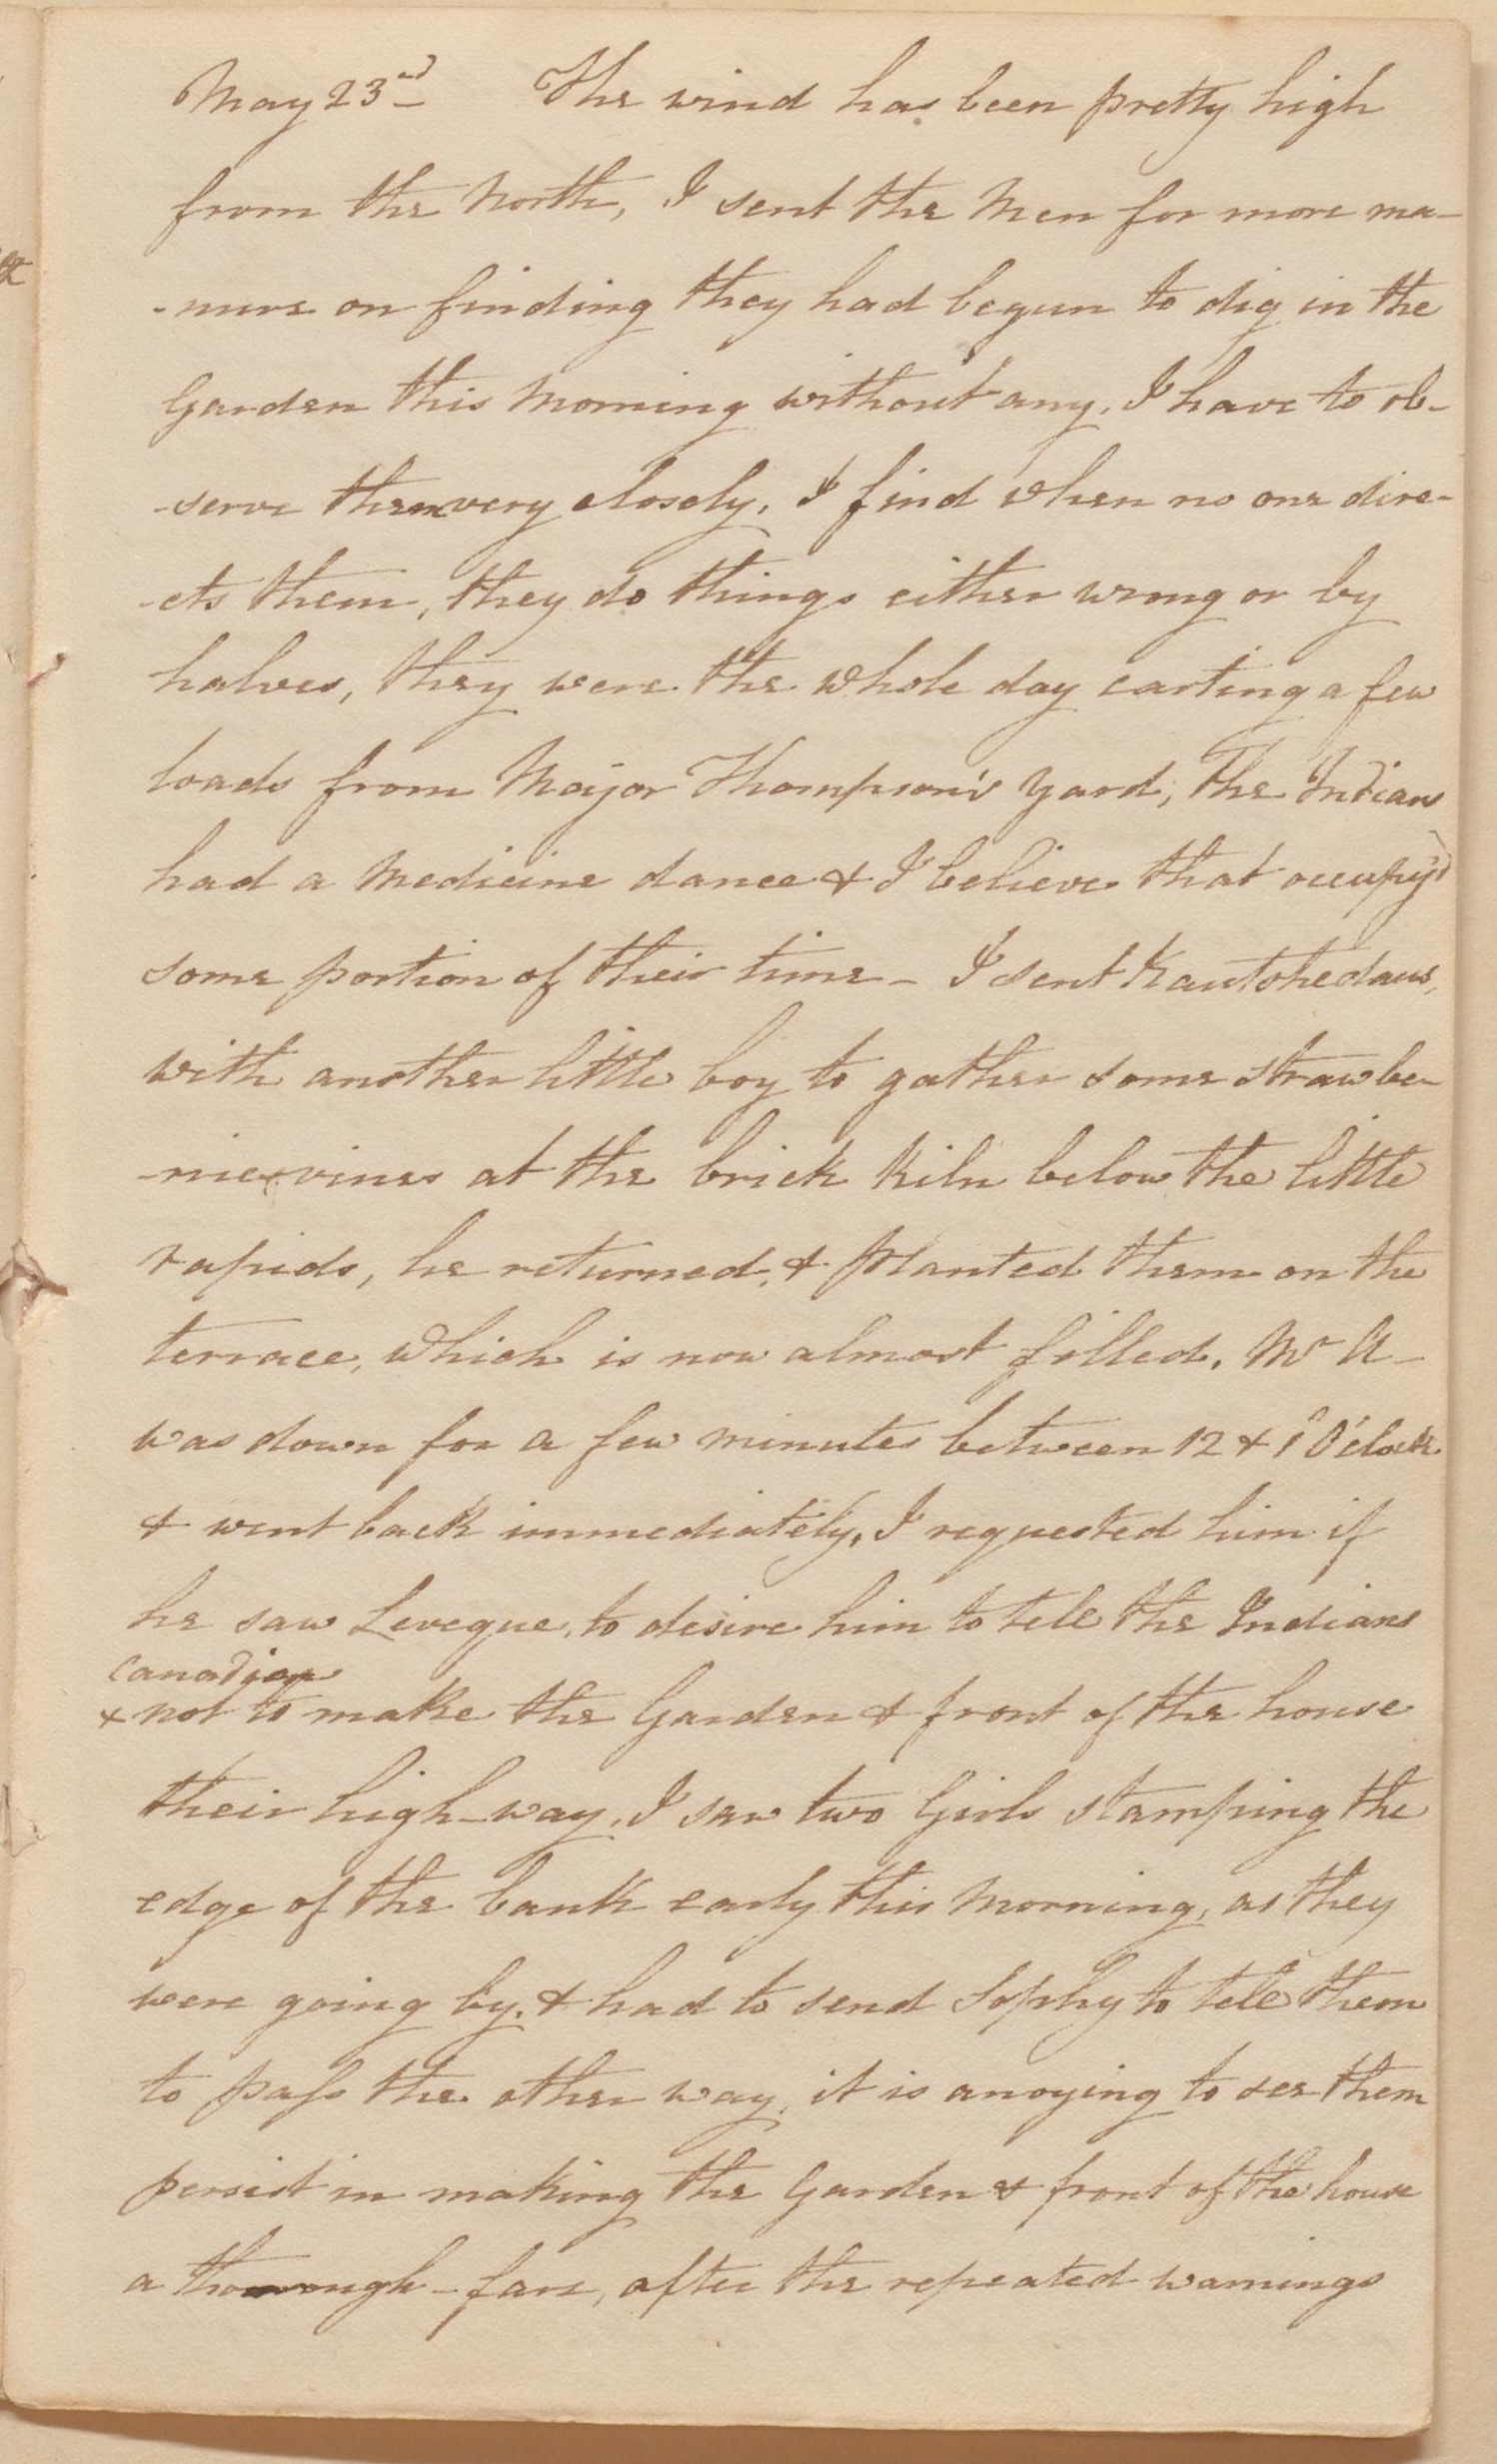 May 23rd The wind has been pretty high
from the North, I sent the Men for more ma-
-nure on finding they had begun to dig in the
Garden this Morning without any. I have to ob-
-serve them very closely, I find when no one dire-
-cts them, they do things either wrong or by
halves, they were the whole day carting a few
loads from Major Thompson's yard, The Indians
had a Medicine dance & I believe that occupy'd
some portion of their time - I sent
with another little boy to gather some strawbe-
-rrie vines at the brick kiln below the little
rapids, he returned, & planted them on the
terrace, which is now almost filled, Mr A-
was down for a few minutes between 12 & 1 O'clock
& went back immediately, I requested him if
he saw Leveque, to desire him to tell the Indians
Canadian
& not to make the Garden & front of the house
their high-way, I saw two Girls stamping the
edge of the bank early this Morning, as they
were going by, & had to send Sophy to tell them
to pass the other way, it is anoying to see them
persist in making the Garden & front of the house
a thorough-fare, after the repeated warnings